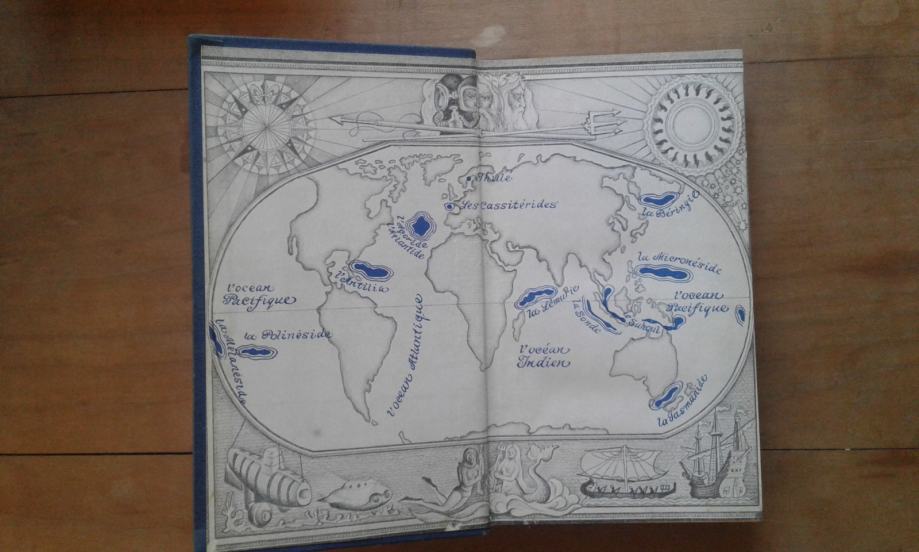 Thule
Les Cassitérides
la Béringie
l'Antilia
la Micronéside
l'ocean
Pacifique
l'ocean
Pacifique
la Lemurie
la Sonde
Sunqui
la Mélanéside
la Polinéside
l'océan Atlantique
l'océan
Indien
la Tasmanide